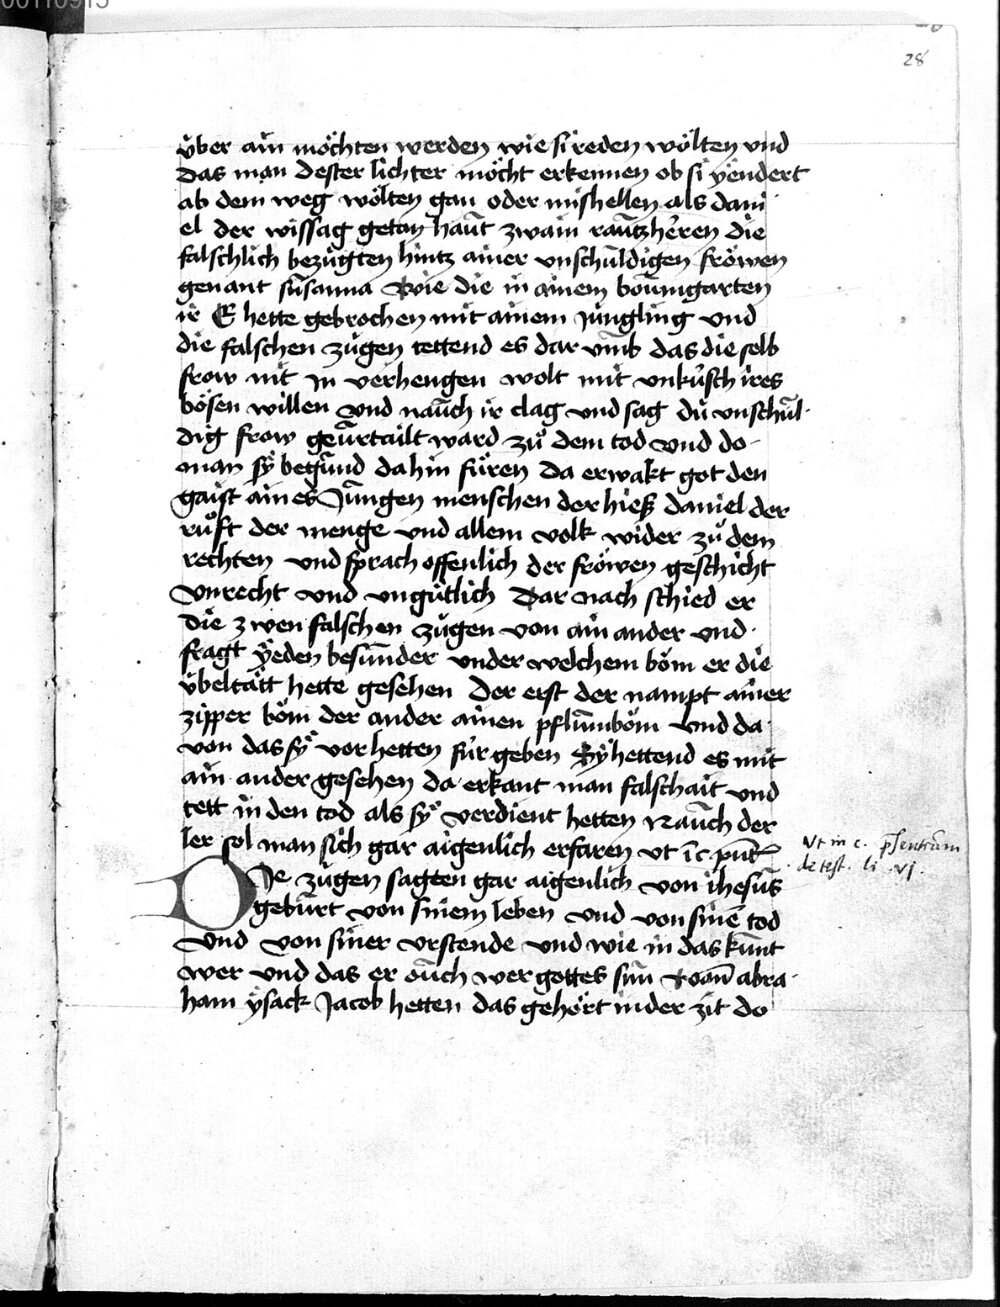 28
v̈ber ain möchten werden wie si reden wölten vnd
das man dester lichter möcht erkennen ob si yëndert
ab dem weg wölten gan oder mishellen als dani
el der wissag getan haut zwain rautzheren die
falschlich bezügten hintz ainer vnschuldigen fröwen
genant susanna Wie die in ainem boumgarten
ir E hette gebrochen mit ainem Jüngling vnd
die falschen zügen tettend es dar vmb das die selb
frow nit jn verhengen wolt mit vnküsch ires
bösen willen vnd nauch ir clag vnd sag dü vnschul
dig frow geurtailt ward zů dem tod vnd do
man sÿ begund dahin füren Da erwakt got den
gaist aines Jungen menschen der hieß daniel der
růft der menge vnd allem volk wider zů dem
rechten vnd sprach offenlich der fröwen geschicht
vnrecht vnd vngütlich Dar nach schied er
die zwen falschen zügen von ain ander vnd
fragt ÿeden besunder vnder welchem böm er die
v̈beltätt hette gesehen Der erst der nampt ainer
zipper böm der ander ainen pflumböm vnd da
von das sÿ vor hetten für geben Sÿ hettend es mit
ain ander gesehen da erkant man falschait vnd
tett in den tod als sÿ verdient hetten Nauch der
ler sol man sich gar aigenlich erfaren vt
Vt in c.
de test. li. vj.
Die zügen sagten gar aigenlich von ihesus
geburt von sinem leben vnd von sinē tod
vnd von siner vrstende vnd wie in das kunt
wer vnd das er ouch wer gottes sun abra
ham ÿsack Jacob hetten das gehört in der zit do